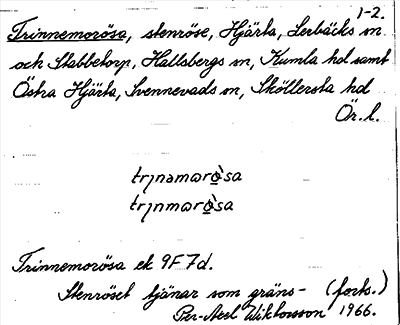 1-2.
Trinnemorösa, stenröse, Hjärta, Lerbäcks sn
och Stabbetorp, Hallsbergs sn, Kumla hd samt
Östra Hjärta, Svennevads sn, Sköllersta hd
Ör. l.
trɪnəmɷrø̀sa
trɪnmɷrø̀sa
Trinnemorösa ek 9F7d.
Stenröset tjänar som gräns- (forts.)
Per-Axel Wiktorsson 1966.